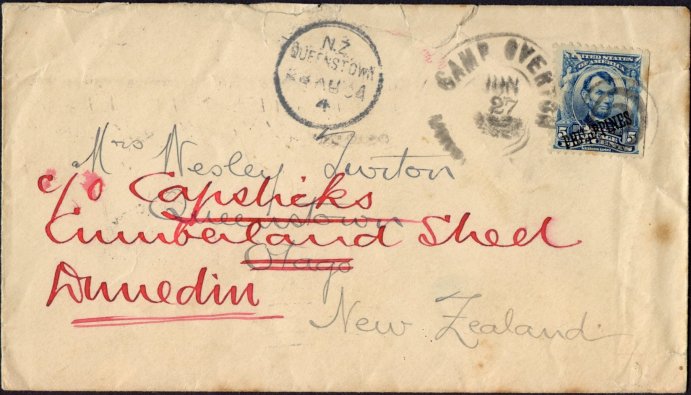 N.Z
QUEENSTOWN
AU 04
4
CAMP OVERTON
JUN
27
UNITED STATES
OF AMERICA
PHILIPPINES
5 5
Mrs Nesley Turton
c/o Capsticks
Queenstown
Cumberland Street
Otago
Dunedin
New Zealand